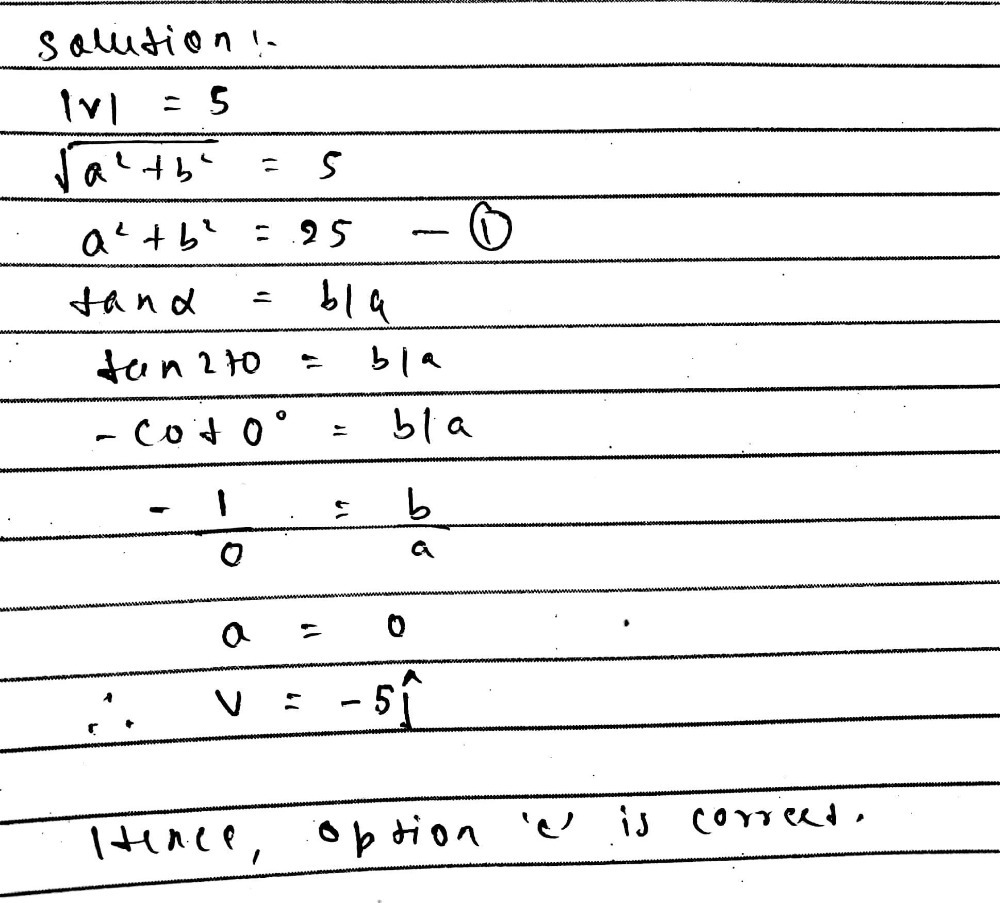 Solution :-
|v| = 5
√a²+b² = 5
a²+b² = 25 — ①
tan α = b/a
tan 270 = b/a
- cot 0° = b/a
- 1/0 = b/a
a = 0
∴ v = -5ĵ
Hence, option 'c' is correct.